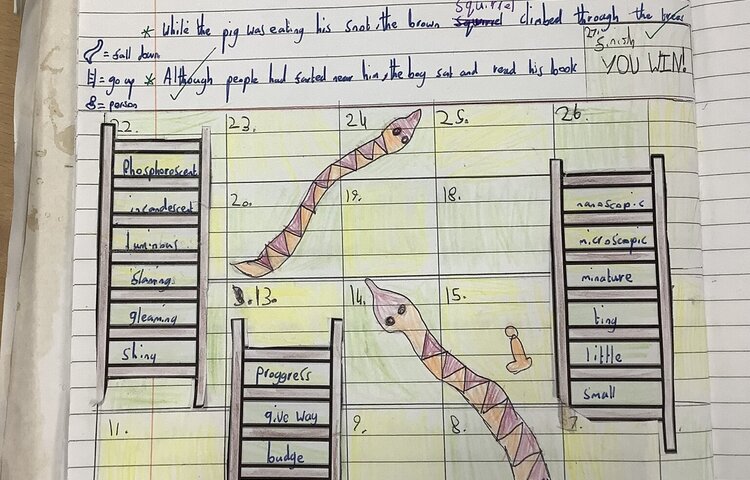 squirrel
* While the pig was eating his snot, the brown squirrel climbed through the trees
= fall down
27. Finish
YOU WIN!
= go up * Although people had farted near him, the boy sat and read his book
= person
22. 23. 24 25. 26.
Phosphorescent
20. 19. 18.
incandescent
nanoscopic
luminous
microscopic
minature
gleaming
13. 14. 15.
tiny
shiny
proggress
little
give way
small
11. 9. 8. 7.
budge